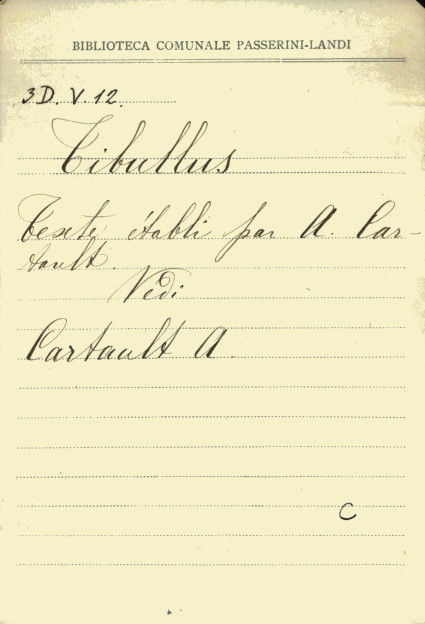 BIBLIOTECA COMUNALE PASSERINI-LANDI
3 D. V. 12.
Tibullus
Texte établi par A. Car-
tault.
Vedi
Cartault A.
C